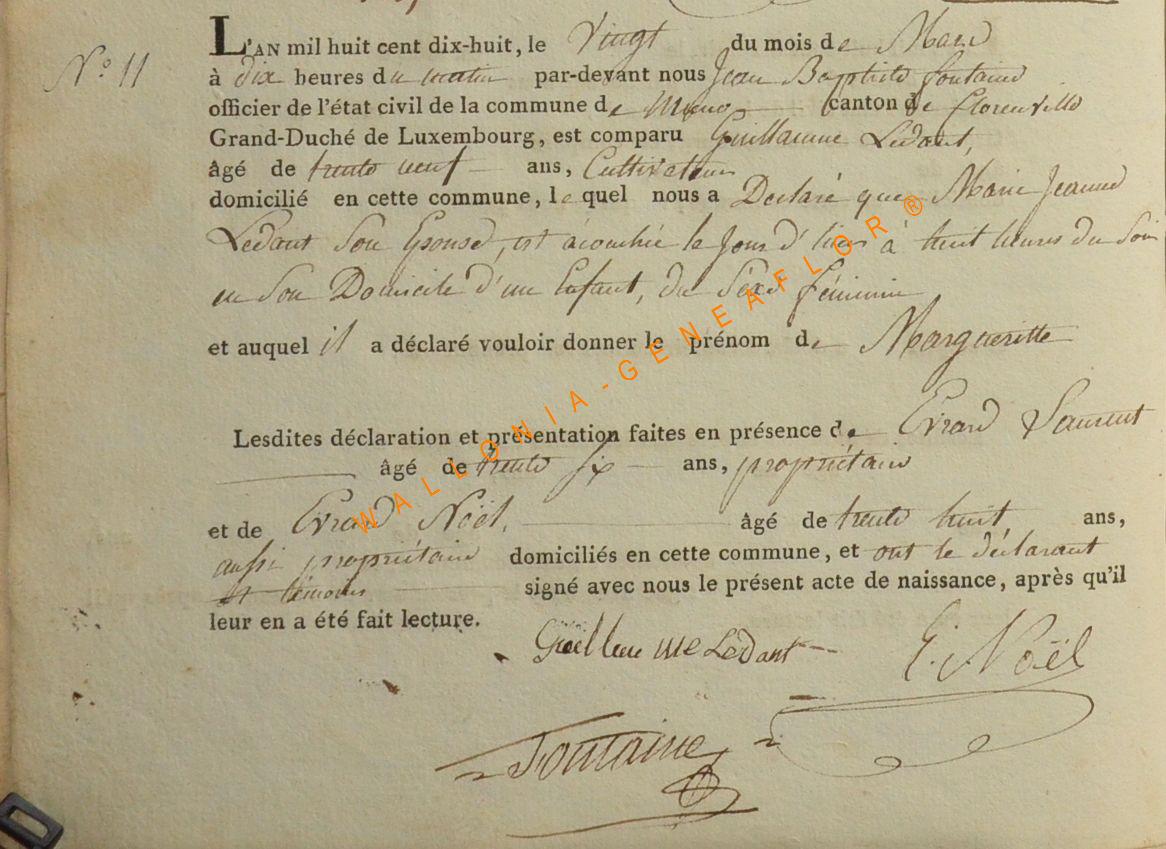 N.º 11
L'AN mil huit cent dix-huit, le Vingt du mois de Mars
à dix heures du matin par-devant nous Jean Baptiste fontaine
officier de l'état civil de la commune de Muno canton de florenville
Grand-Duché de Luxembourg, est comparu Guillaume Ledant,
âgé de trente neuf ans, Cultivateur
domicilié en cette commune, lequel nous a Déclaré que Marie Jeanne
Ledant Son Epouse, est acouchée le Jour d'hier à huit heures du Soir
en Son Domicile d'un Enfant, du Sexe féminin
et auquel il a déclaré vouloir donner le prénom de Margueritte
Lesdites déclaration et présentation faites en présence de Evrard Laurent
âgé de trente six ans, propriétaire
et de Evrard Noël, âgé de trente huit, ans,
aussi propriétaire domiciliés en cette commune, et ont le déclarant
et témoins signé avec nous le présent acte de naissance, après qu'il
leur en a été fait lecture.
Guelleaume Ledant E. Noël
Fontaine
WALLONIA-GENEAFLOR®